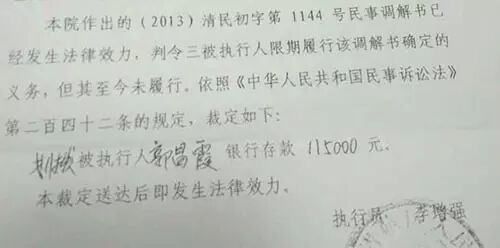 本院作出的（2013）清民初字第 1144 号民事调解书已
经发生法律效力，判令三被执行人限期履行该调解书确定的
义务，但其至今未履行。依照《中华人民共和国民事诉讼法》
第二百四十二条的规定，裁定如下：
划拨被执行人郭昌霞 银行存款 115000 元。
本裁定送达后即发生法律效力。
执行员 李增强